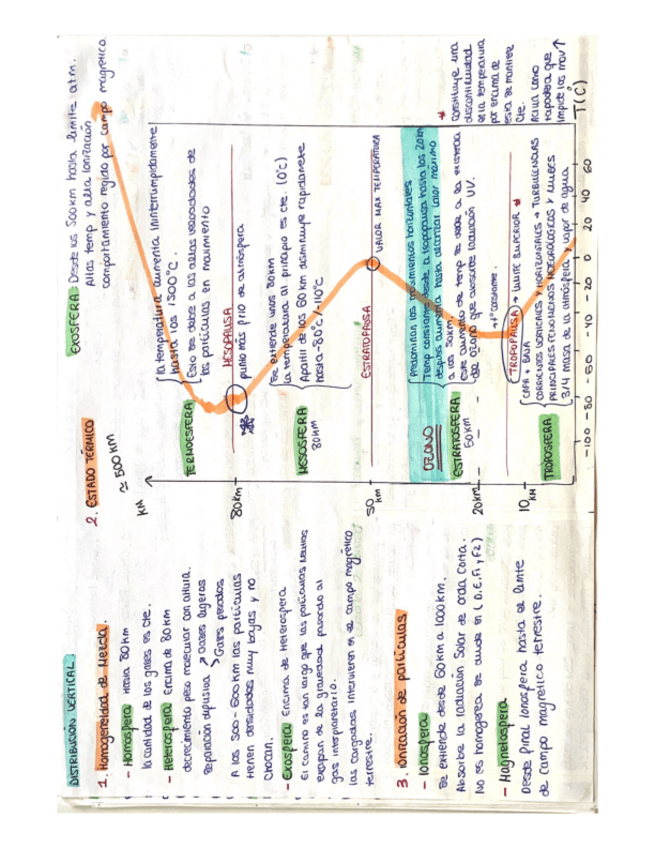 DISTRIBUCIÓN VERTICAL
1. Homogeneidad de Mezcla.
- Homosfera hasta 80km
la cantidad de los gases es cte.
- Heterosfera Encima de 80 km
decrecimiento peso molecular con altura.
Separación difusiva → Gases ligeros
→ Gases pesados
A los 500-600 km las partículas
tienen densidades muy bajas y no
chocan.
- Exosfera Encima de Heterosfera
El camino es tan largo que las partículas neutras
escapan de la gravedad pasando al
gas interplanetario.
las cargadas intervienen en el campo magnético
terrestre.
3. Ionización de partículas
- Ionosfera
Se extiende desde 60km a 1000km.
Absorbe la radiación Solar de onda corta.
No es homogénea se divide en (D, E, F1 y F2)
- Magnetosfera
Desde final Ionosfera hasta el límite
de campo magnético terrestre.
2. ESTADO TÉRMICO
≃ 500 KM
KM
EXOSFERA Desde los 500km hasta límite atm.
Altas temp y alta Ionización
comportamiento regido por campo magnético.
TERMOSFERA
la temperatura aumenta ininterrumpidamente
hasta los 1500°C.
Esto se debe a las altas velocidades de
las partículas en movimiento
80km
MESOPAUSA
punto más frío de atmósfera
MESOSFERA
80km
Se extiende unos 80km
la temperatura al principio es cte. (0°C)
Apartir de los 60 km disminuye rapidamente
hasta -80°C/-110°C
50 km
ESTRATOPAUSA
VALOR MAX TEMPERATURA
OZONO
ESTRATOSFERA
50 KM
Predominan los movimientos horizontales
Temp constante desde la tropopausa hasta los 20km
después aumenta hasta alcanzar valor máximo
a los 50km.
este aumento de temp se debe a la existencia
del ozono que absorbe radiación UV.
20km
10 KM
TROPOPAUSA → LIMITE SUPERIOR *
TROPOSFERA
CAPA + BAJA
CORRIENTES VERTICALES Y HORIZONTALES → TURBULENCIAS
PRINCIPALES FENOMENOS METEOROLOGICOS Y NUBES
3/4 masa de la atmósfera y vapor de agua
-100 -80 -60 -40 -20 0 20 40 60
T(°C)
* Constituye una
discontinuidad
en la temperatura
por encima de
esta se mantiene
cte.
Actua como
tapadera que
impide los mov ↑